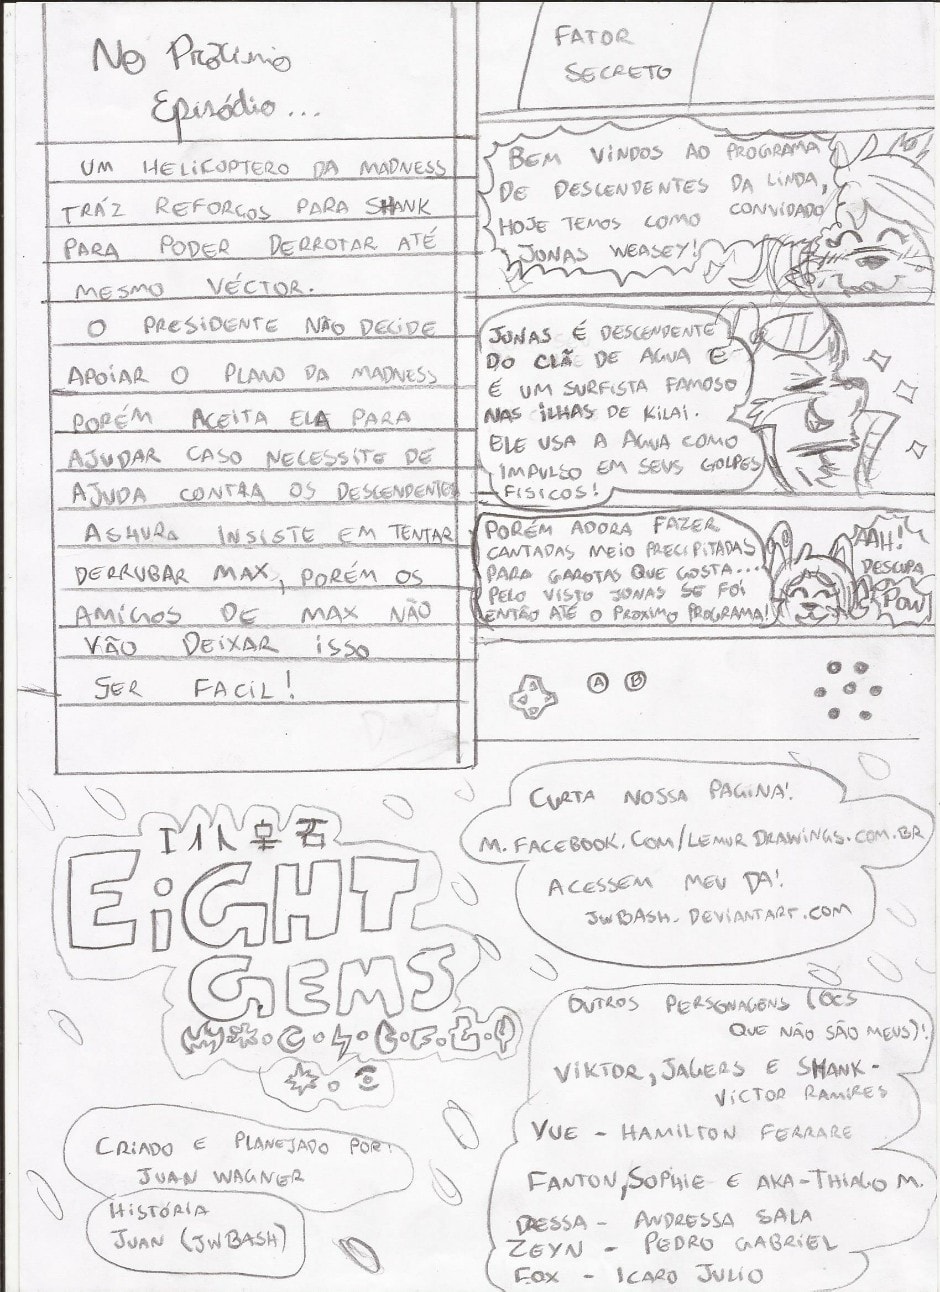 No Proximo
Episódio...
UM HELICOPTERO DA MADNESS
TRÁZ REFORÇOS PARA SHANK
PARA PODER DERROTAR ATÉ
MESMO VÉCTOR.
O PRESIDENTE NÃO DECIDE
APOIAR O PLANO DA MADNESS
PORÉM ACEITA ELA PARA
AJUDAR CASO NECESSITE DE
AJUDA CONTRA OS DESCENDENTES
ASHURA INSISTE EM TENTAR
DERRUBAR MAX, PORÉM OS
AMIGOS DE MAX NÃO
VÃO DEIXAR ISSO
SER FACIL!
FATOR
SECRETO
BEM VINDOS AO PROGRAMA
DE DESCENDENTES DA LINDA,
HOJE TEMOS COMO CONVIDADO
JONAS WEASEY!
JONAS É DESCENDENTE
DO CLÃ DE AGUA E
É UM SURFISTA FAMOSO
NAS ILHAS DE KILAI.
ELE USA A AGUA COMO
IMPULSO EM SEUS GOLPES
FISICOS!
PORÉM ADORA FAZER
CANTADAS MEIO PRECIPITADAS
PARA GAROTAS QUE GOSTA...
PELO VISTO JONAS SE FOI
ENTÃO ATÉ O PROXIMO PROGRAMA!
AAH!
DESCUPA
POW
A B
EIGHT
GEMS
CURTA NOSSA PAGINA!
M.FACEBOOK.COM/LEMURDRAWINGS.COM.BR
ACESSEM MEU DA!
JWBASH.DEVIANTART.COM
CRIADO E PLANEJADO POR:
JUAN WAGNER
HISTÓRIA
JUAN (JWBASH)
OUTROS PERSONAGENS (OCS
QUE NÃO SÃO MEUS)!
VIKTOR, JAGERS E SHANK -
VICTOR RAMIRES
YUE - HAMILTON FERRARE
FANTON, SOPHIE E AKA - THIAGO M.
DESSA - ANDRESSA SALA
ZEYN - PEDRO GABRIEL
FOX - ICARO JULIO